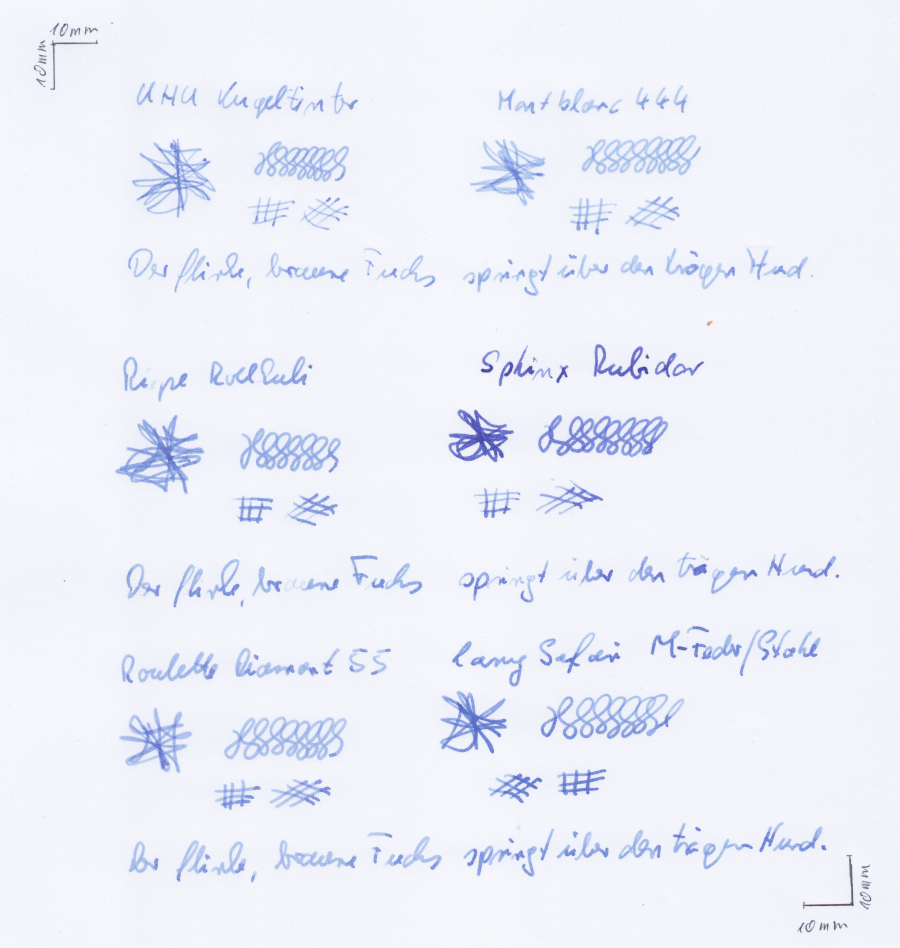 10mm
10mm
UHU Kugeltinter Montblanc 444
Der flinke, braune Fuchs springt über den trägen Hund.
Riepe RollKuli Sphinx Rubidor
Der flinke, braune Fuchs springt über den trägen Hund.
Roulette Diamant 55 Lamy Safari M-Feder/Stahl
Der flinke, braune Fuchs springt über den trägen Hund.
10mm
10mm